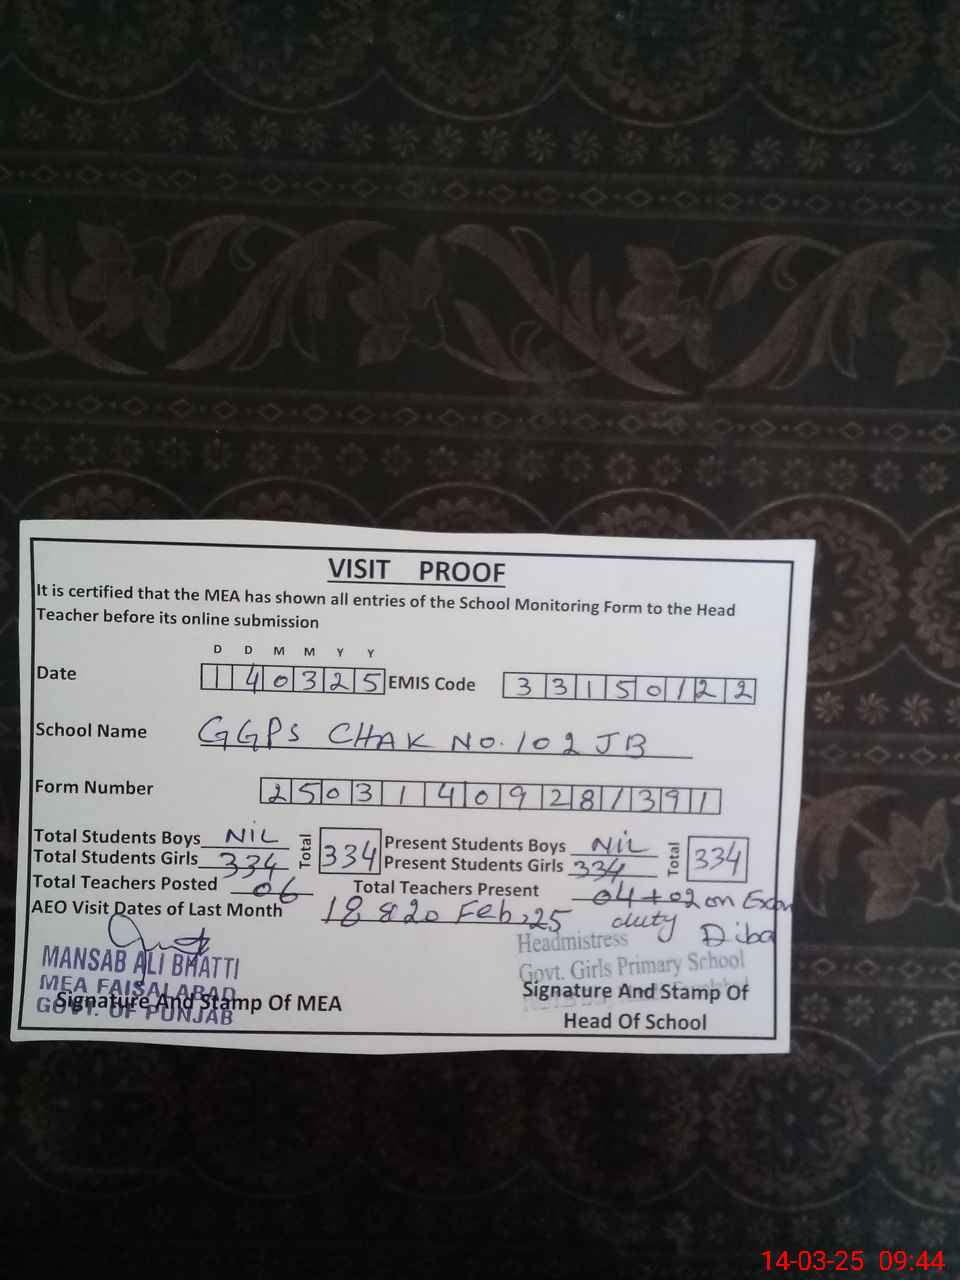 VISIT PROOF
It is certified that the MEA has shown all entries of the School Monitoring Form to the Head
Teacher before its online submission
D D M M Y Y
Date 140325 EMIS Code 33150122
School Name GGPS CHAK NO. 102 JB
Form Number 25031409281391
Total Students Boys NIL Total 334 Present Students Boys NIL Total 334
Total Students Girls 334 Present Students Girls 334
Total Teachers Posted 06 Total Teachers Present 04+02 on Exam
duty
AEO Visit Dates of Last Month 18 & 20 Feb, 25
Diba
MANSAB ALI BHATTI
MEA FAISALABAD
GOVT. OF PUNJAB
Signature And Stamp Of MEA
Headmistress
Govt. Girls Primary School
Signature And Stamp Of
Head Of School
14-03-25 09:44